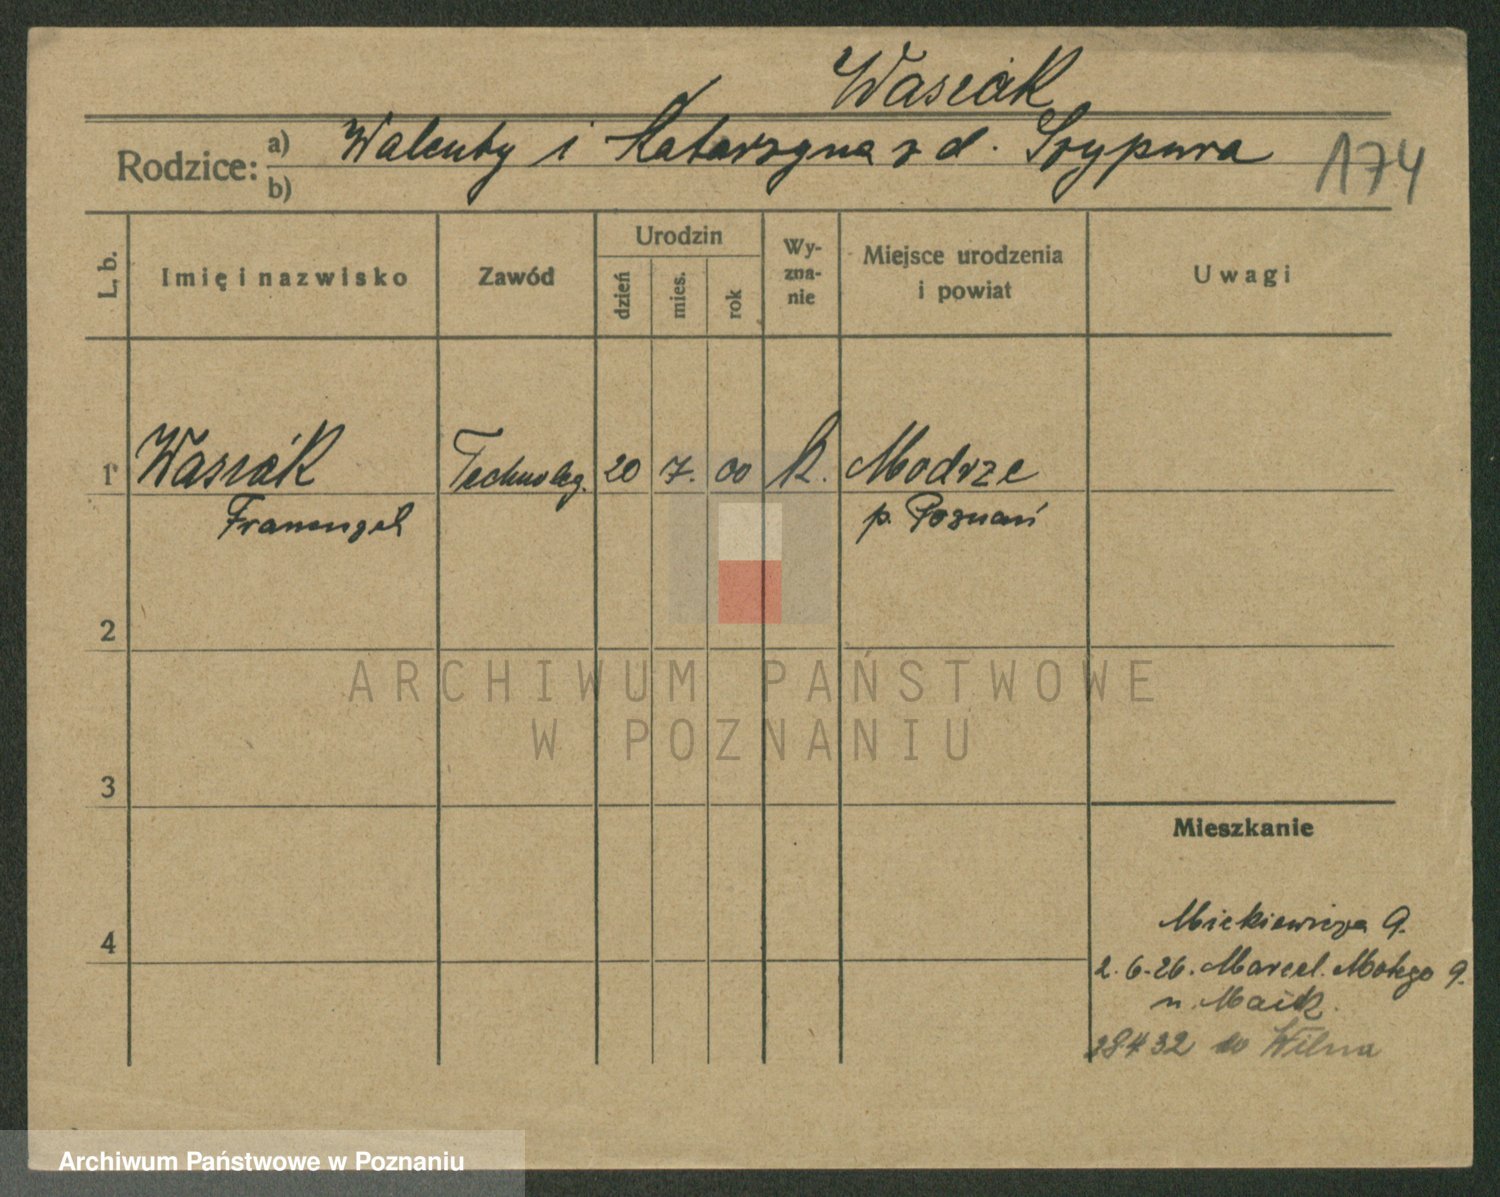 Wasiak
Rodzice: a) Walenty i Katarzyna z d. Szypura
b)
174
L. b.
Imię i nazwisko
Zawód
Urodzin
dzień
mies.
rok
Wy-
zna-
nie
Miejsce urodzenia
i powiat
Uwagi
1 Wasiak Technolog. 20 7. 00 k. Modrze
Franciszek p. Poznań
2
3
4
ARCHIWUM PAŃSTWOWE
W POZNANIU
Mieszkanie
Mickiewicza 9.
2.6.26. Marcel. Motego 9.
u.
28 4 32 do Wilna
Archiwum Państwowe w Poznaniu